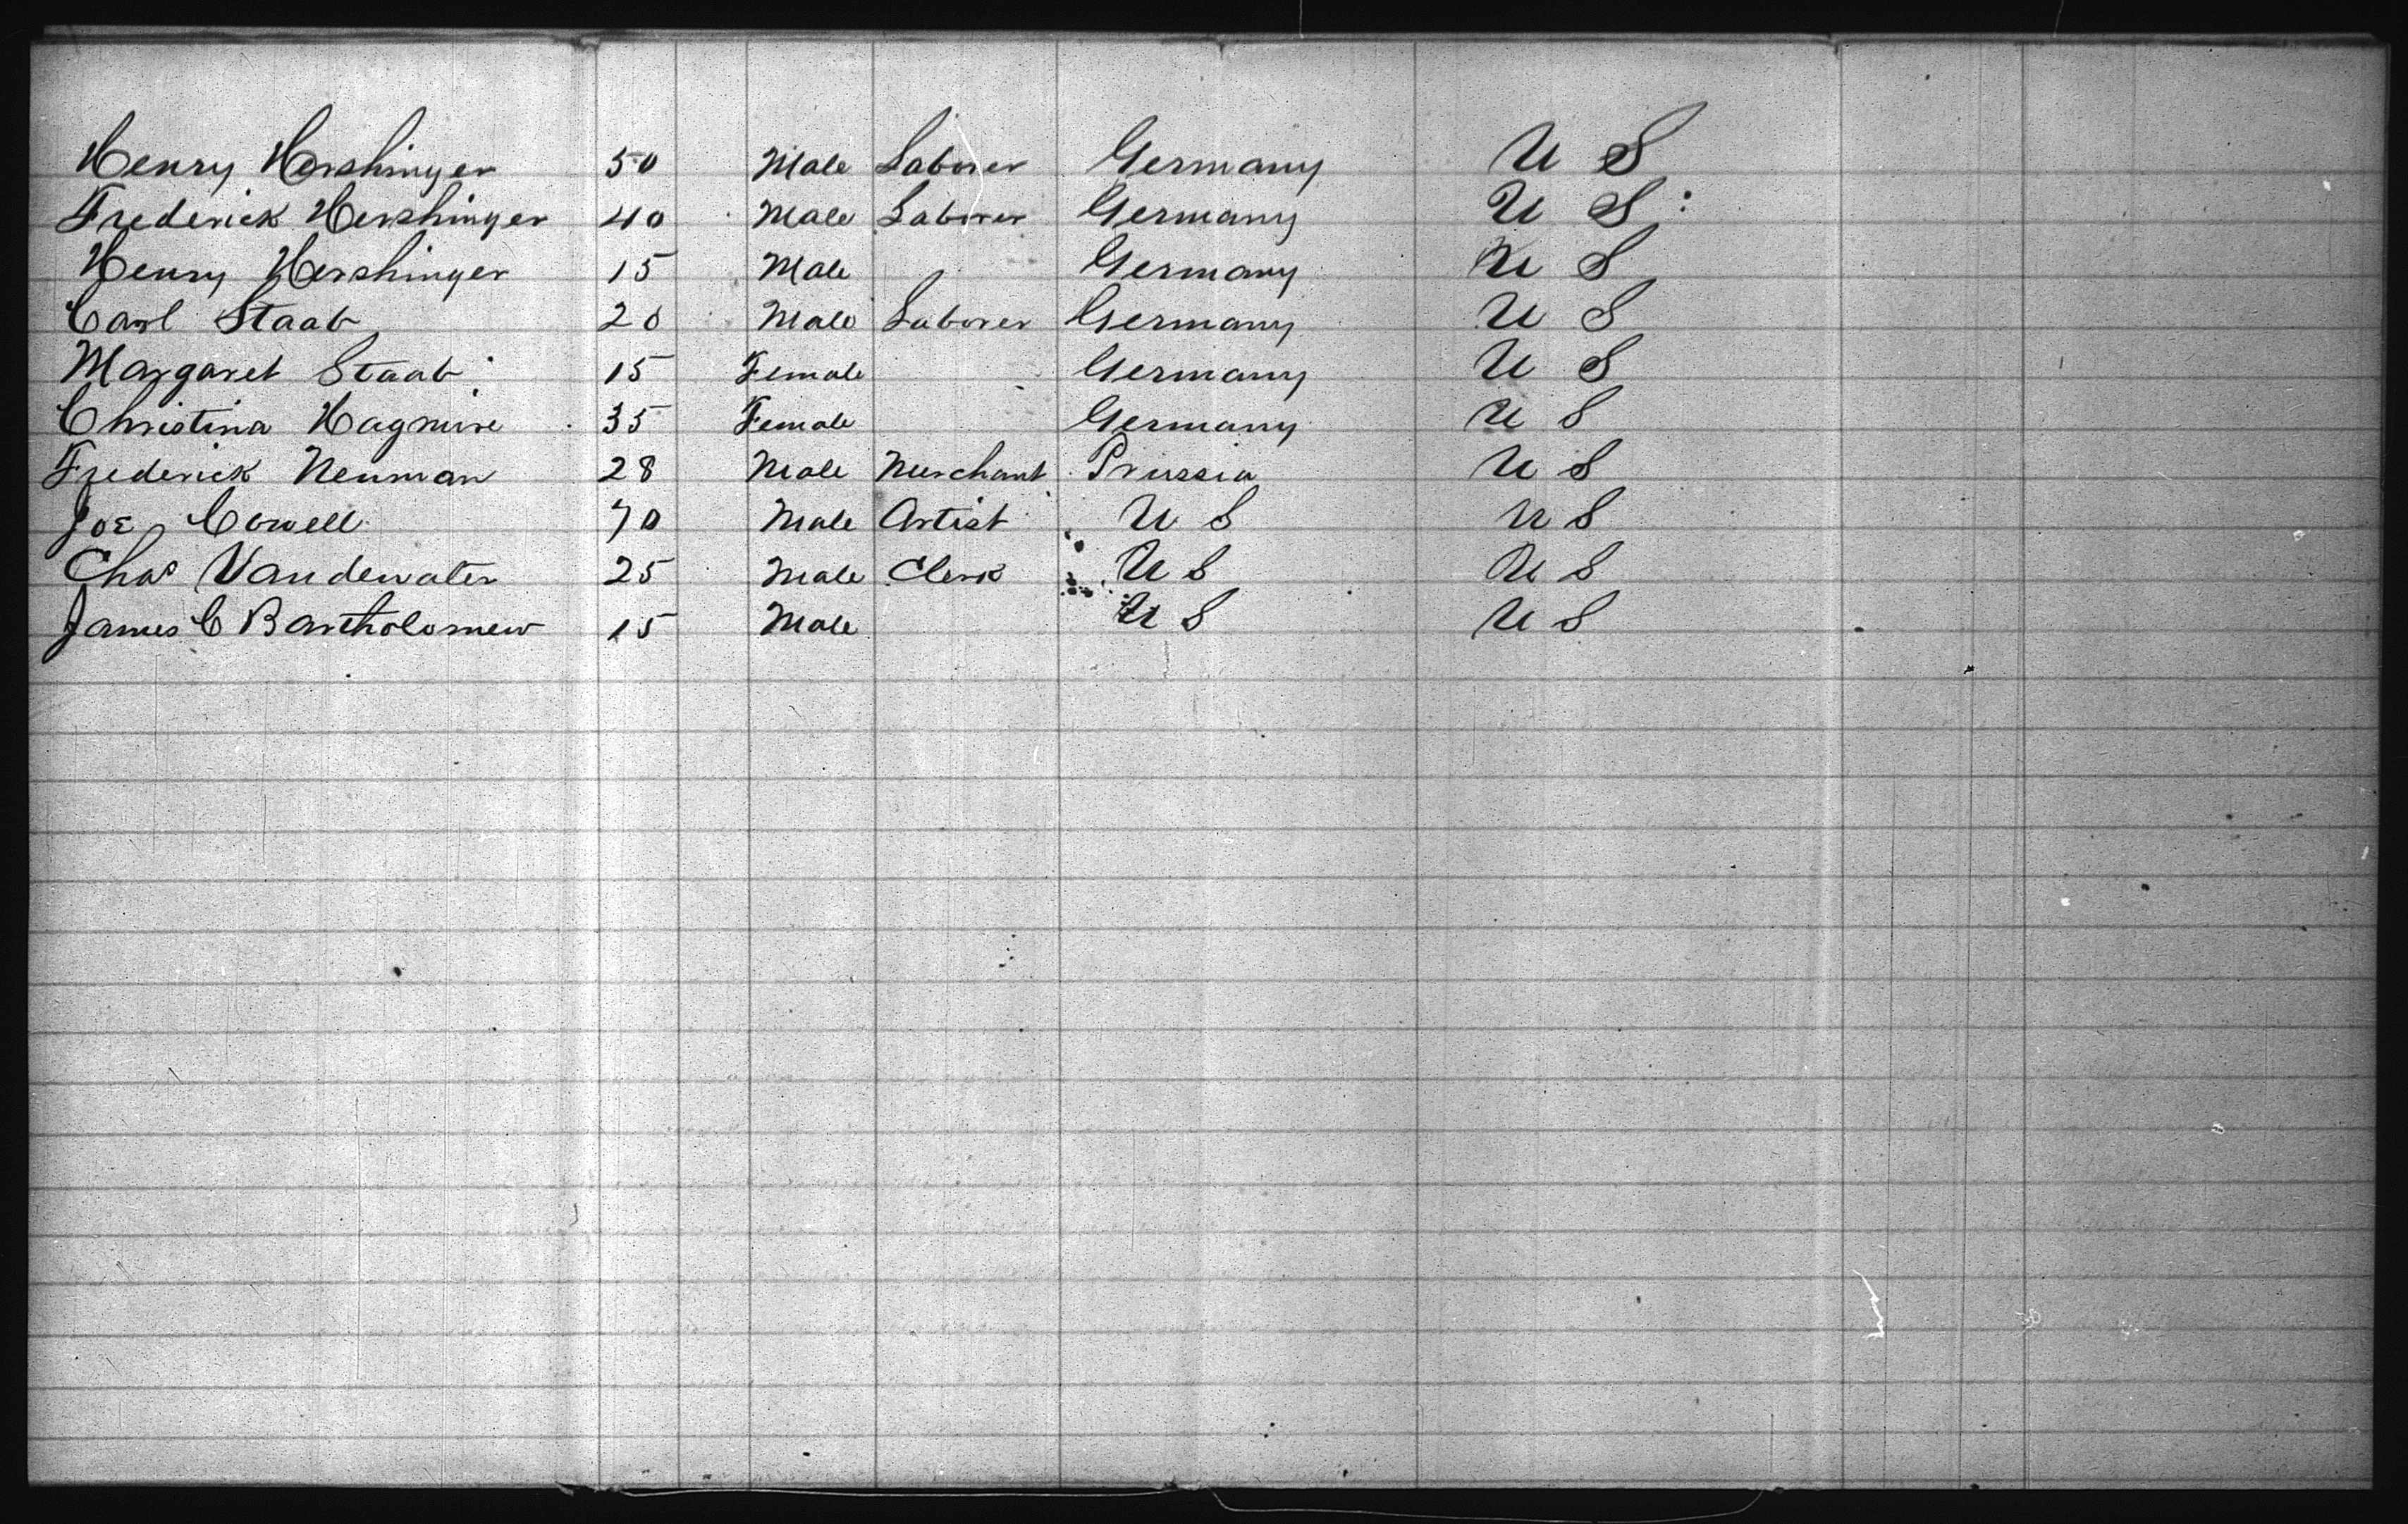 Henry Hershinger 50 Male Laborer Germany U S
Frederick Hershinger 40 Male Laborer Germany U S
Henry Hershinger 15 Male Germany U S
Carl Staab 20 Male Laborer Germany U S
Margaret Staab 15 Female Germany U S
Christina Hagmire 35 Female Germany U S
Frederick Neuman 28 Male Merchant Prussia U S
Joe Cowell 70 Male Artist U S U S
Chas Vandewater 25 Male Clerk U S U S
James C Bartholomew 15 Male U S U S